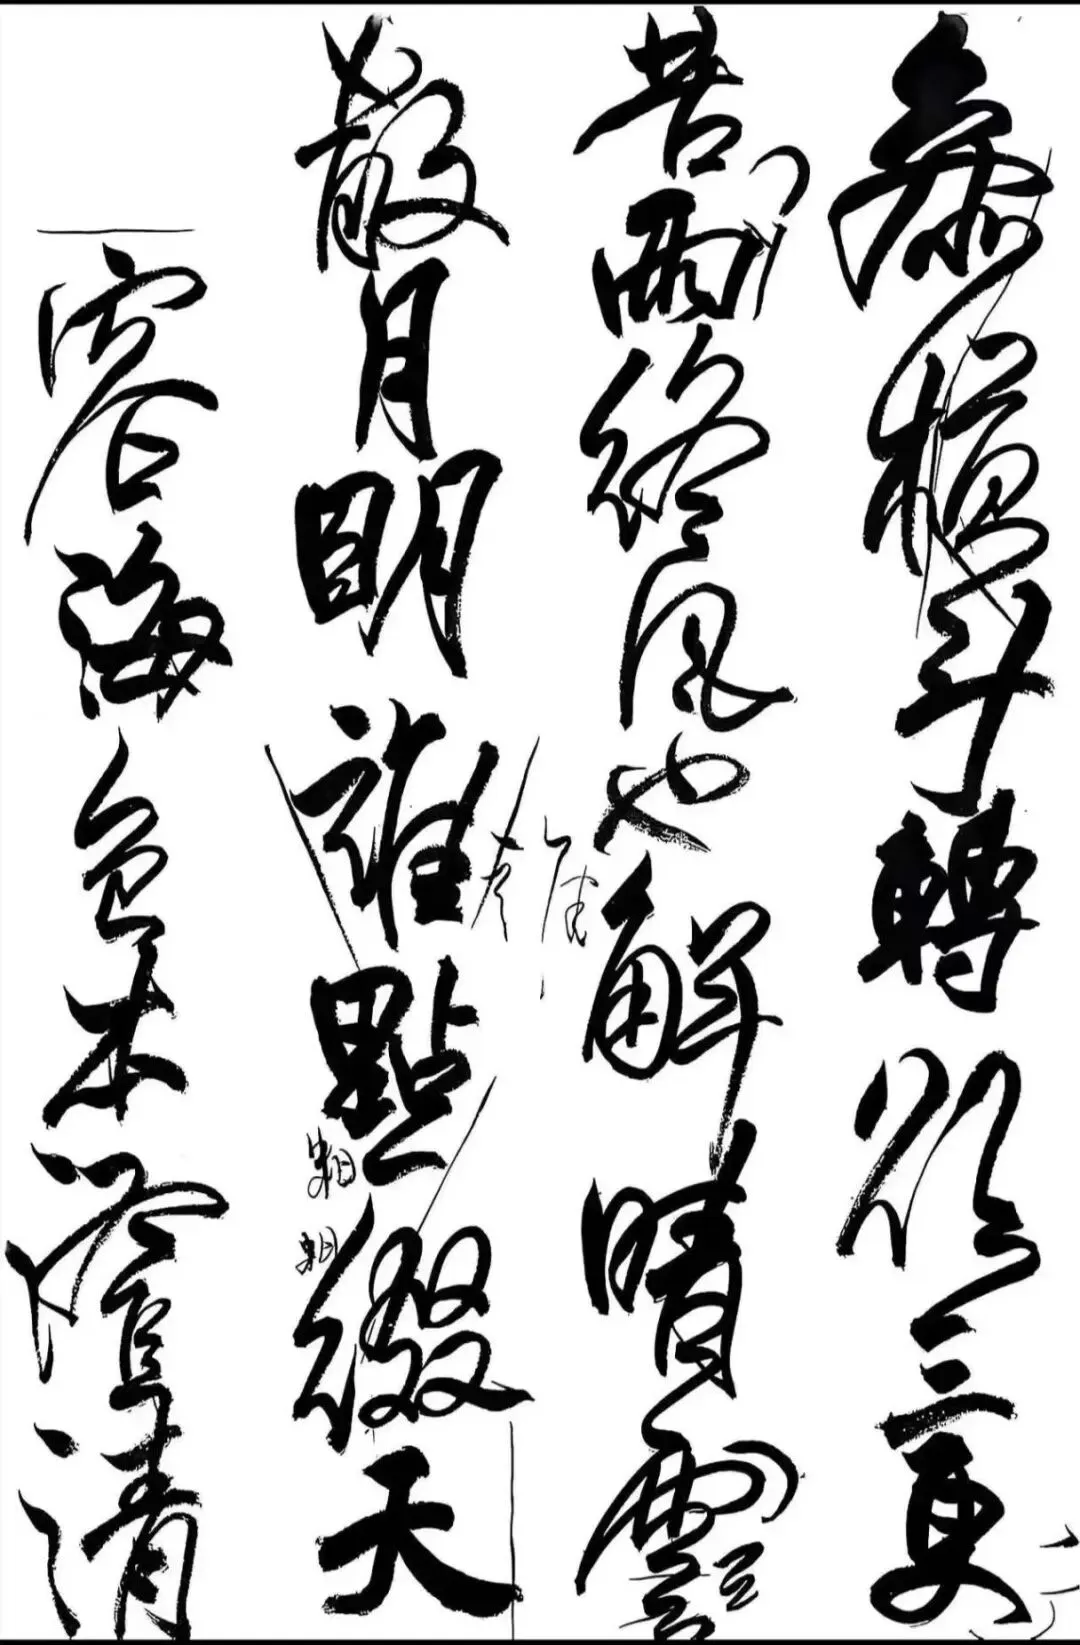 參橫斗轉欲三更
苦雨終風也解晴雲
散月明誰點綴天
容海色本澄清